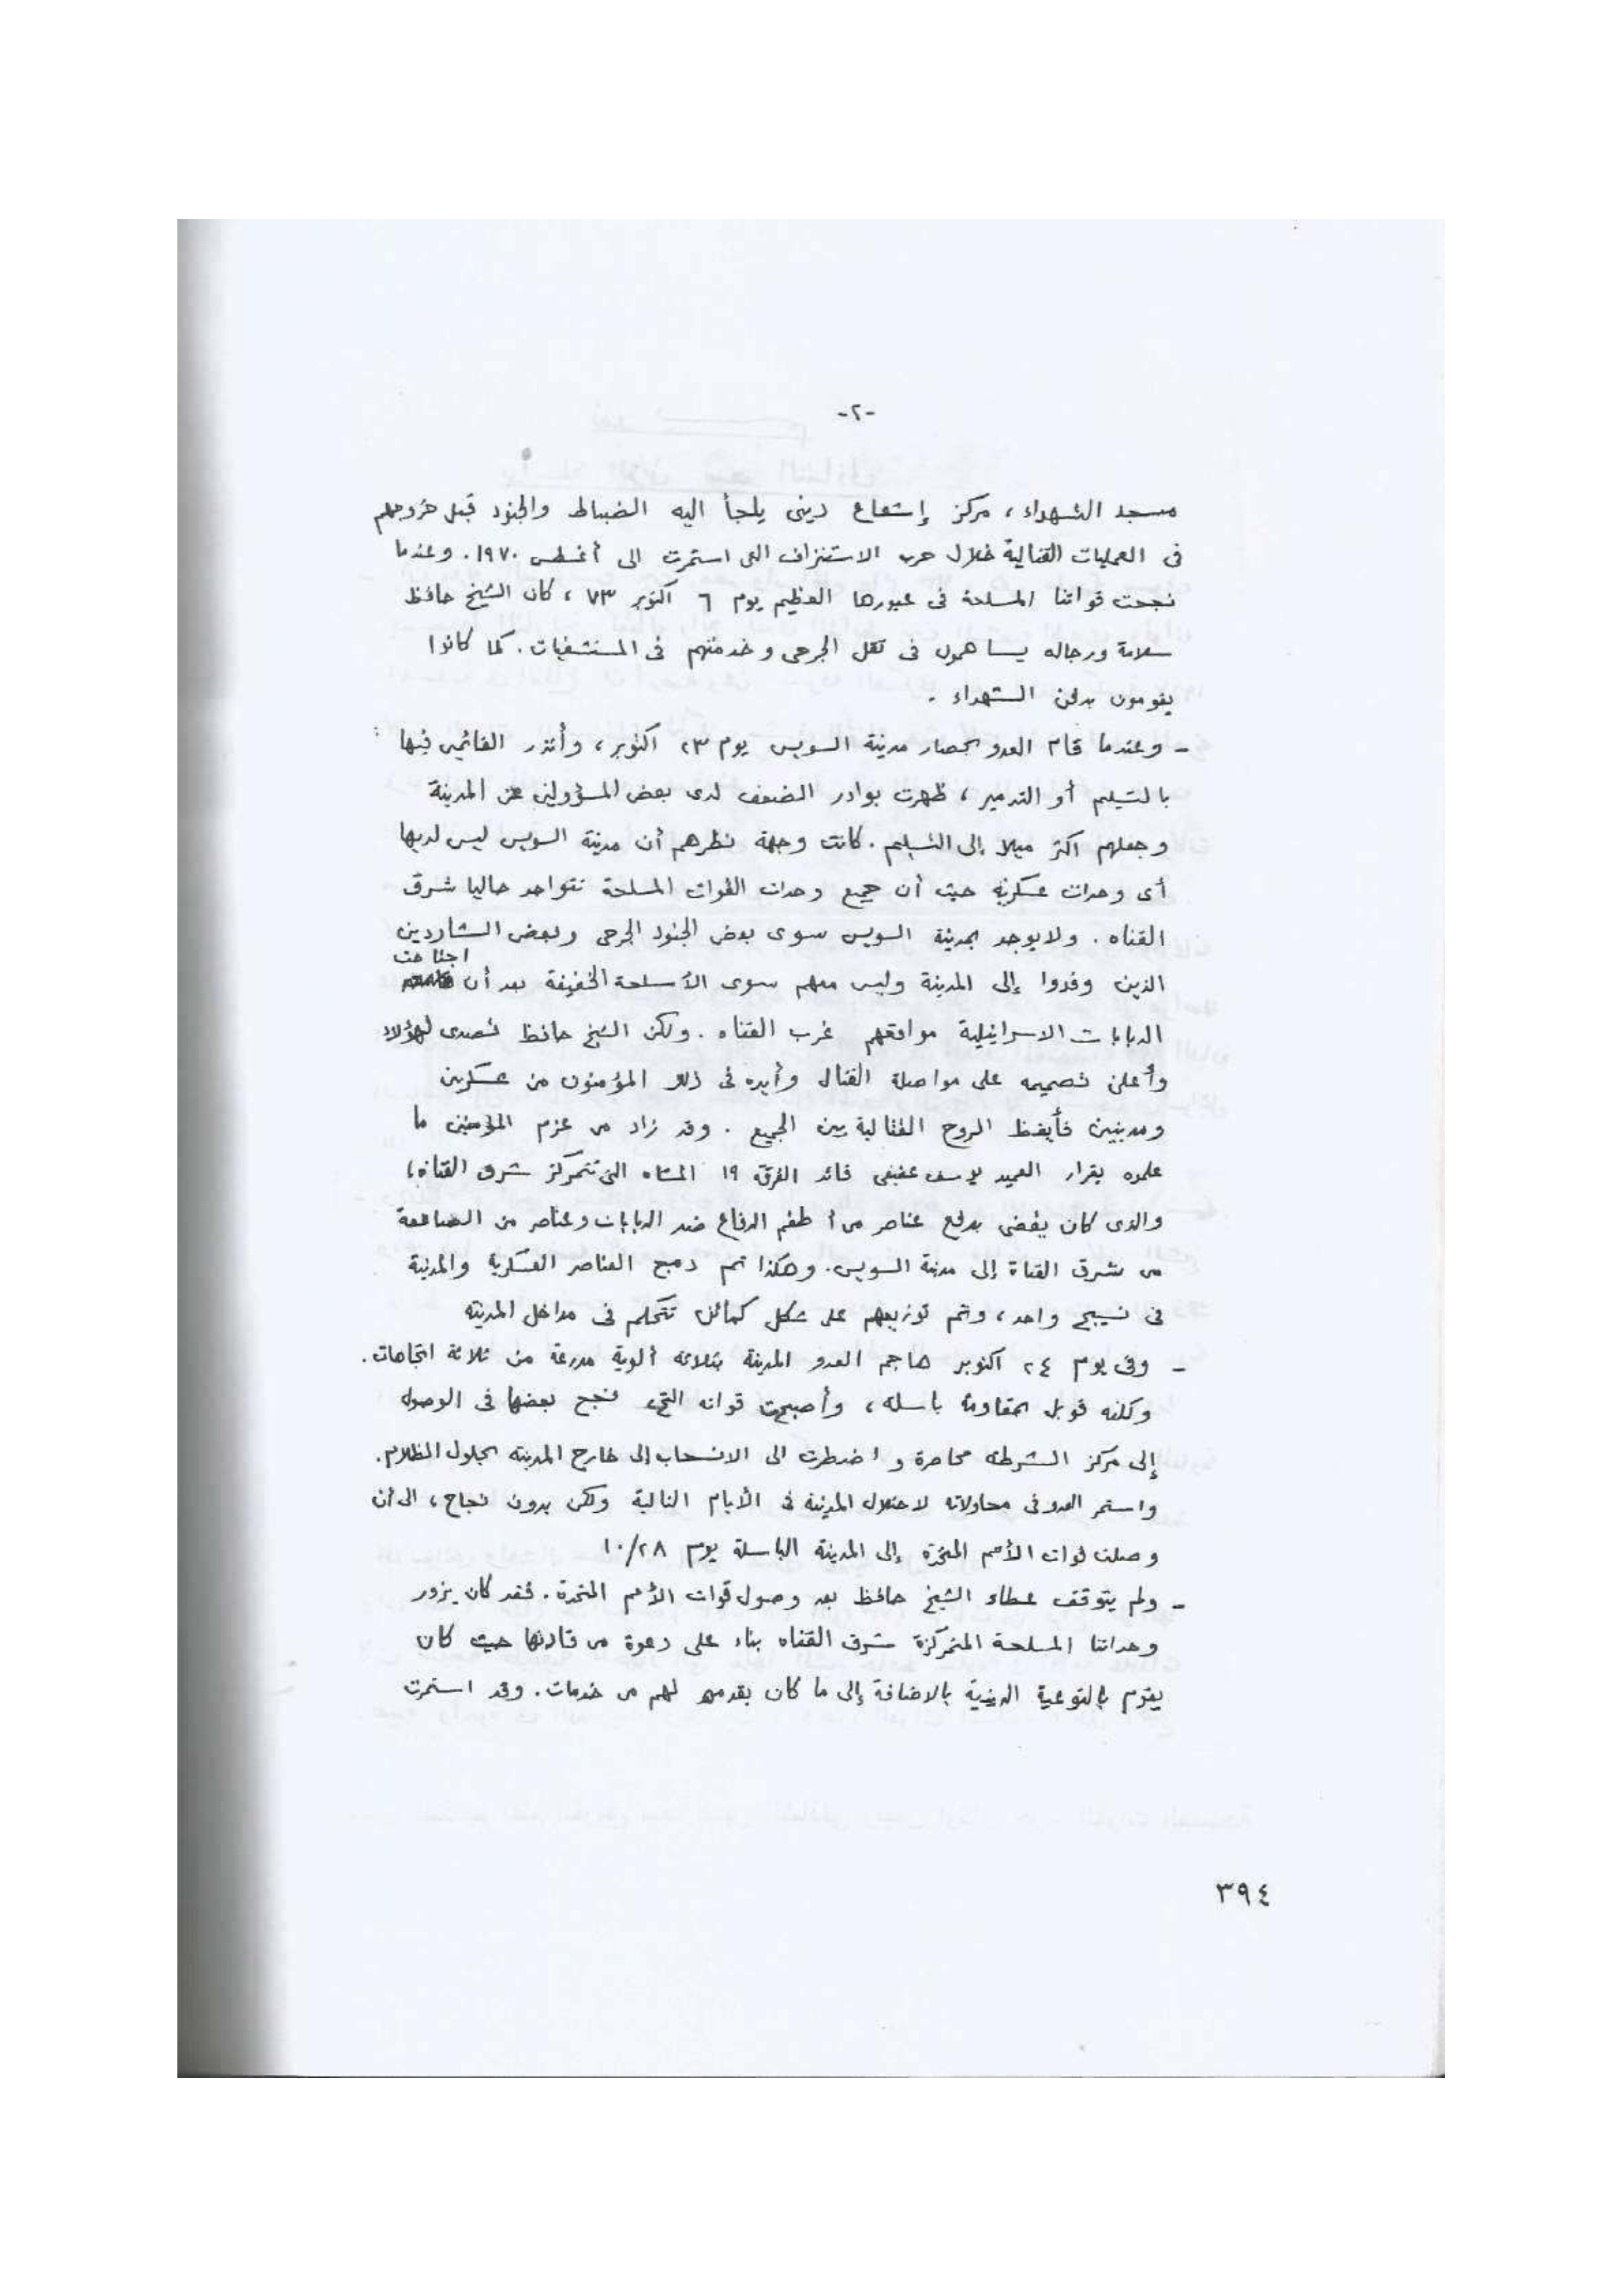 -٢-
مسجد الشهداء، مركز إشعاع دينى يلجأ اليه الضباط والجنود قبل خروجهم
فى العمليات القتالية خلال حرب الاستنزاف التى استمرت الى أغسطس ١٩٧٠. وعندما
نجحت قواتنا المسلحة فى عبورها العظيم يوم ٦ اكتوبر ٧٣، كان الشيخ حافظ
سلامة ورجاله يساهمون فى نقل الجرحى وخدمتهم فى المستشفيات. كما كانوا
يقومون بدفن الشهداء.
- وعندما قام العدو بحصار مدينة السويس يوم ٢٣ اكتوبر، وأنذر القائمين فيها
بالتسليم أو التدمير، ظهرت بوادر الضعف لدى بعض المسؤولين عن المدينة
وجعلهم اكثر ميلا إلى التسليم. كانت وجهة نظرهم أن مدينة السويس ليس لديها
أى وحدات عسكرية حيث أن جميع وحدات القوات المسلحة تتواجد حاليا شرق
القناه. ولا يوجد بمدينة السويس سوى بعض الجنود الجرحى وبعض الشاردين
الذين وفدوا إلى المدينة وليس معهم سوى الأسلحة الخفيفة بعد أن اجتاحت
الدبابات الاسرائيلية مواقعهم غرب القناه. ولكن الشيخ حافظ تصدى لهؤلاء
وأعلن تصميمه على مواصلة القتال وأيده فى ذلك المؤمنون من عسكريين
ومدنيين فأيقظ الروح القتالية بين الجميع. وقد زاد من عزم المؤمنين ما
علموه بقرار العميد يوسف عفيفى قائد الفرقة ١٩ المشاه التى تتمركز شرق القناه؛
والذى كان يقضى بدفع عناصر من أطقم الدفاع ضد الدبابات وعناصر من الصاعقة
من شرق القناة إلى مدينة السويس. وهكذا تم دمج العناصر العسكرية والمدنية
فى نسيج واحد، وتم توزيعهم على شكل كمائن تتحكم فى مداخل المدينه
- وفى يوم ٢٤ اكتوبر هاجم العدو المدينة بثلاثة ألوية مدرعة من ثلاثة اتجاهات.
ولكنه قوبل بمقاومة باسلة، وأصبحت قواته التى نجح بعضها فى الوصول
إلى مركز الشرطه محاصرة واضطرت الى الانسحاب إلى خارج المدينه بحلول الظلام.
واستمر العدو فى محاولاته لاحتلال المدينة فى الأيام التالية ولكن بدون نجاح، الى أن
وصلت قوات الأمم المتحدة إلى المدينة الباسلة يوم ١٠/٢٨
- ولم يتوقف عطاء الشيخ حافظ بعد وصول قوات الأمم المتحدة. فقد كان يزور
وحداتنا المسلحة المتمركزة شرق القناه بناء على دعوة من قادتها حيث كان
يقوم بالتوعية الدينية بالاضافة إلى ما كان يقدمه لهم من خدمات. وقد استمرت
٣٩٤